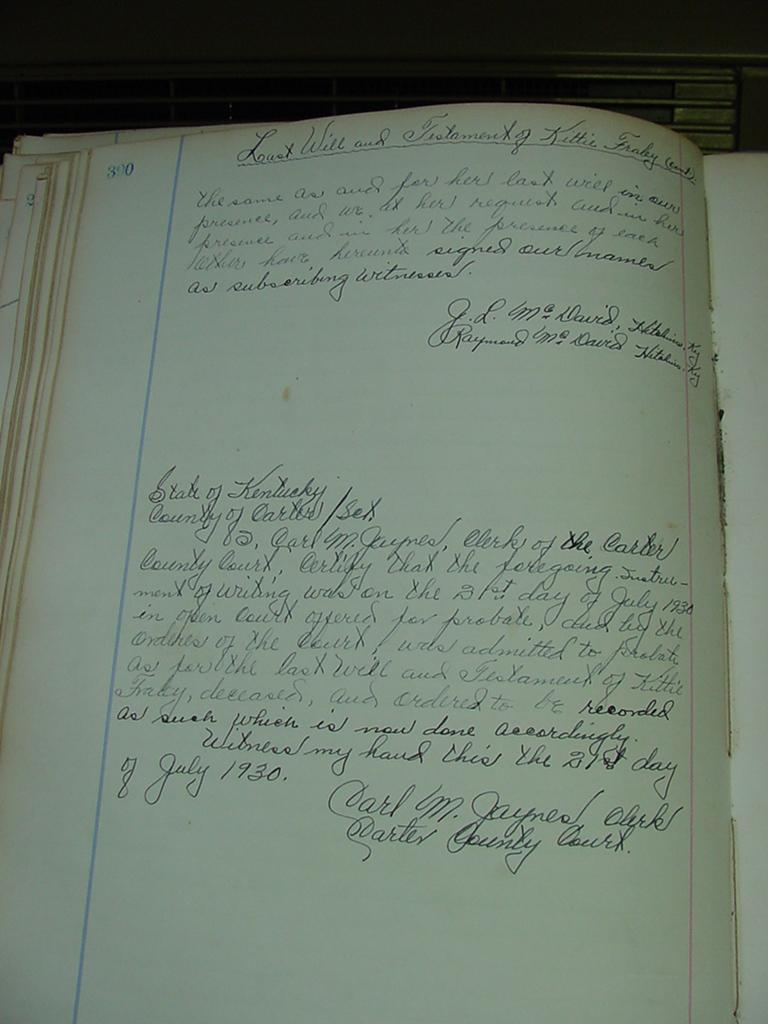 390
Last Will and Testament of Kittie Fraley (cont).
the same as and for her last will in our
presence, and we, at her request and in her
presence and in her the presence of each
other have hereunto signed our names
as subscribing witnesses.
J. L. McDavid, Hitchins, Ky
Raymond McDavid Hitchins, Ky
State of Kentucky
County of Carter / Sct.
I, Carl M. Jaynes, Clerk of the Carter
County Court, Certify that the foregoing Instru-
ment of writing was on the 21st day of July 1930
in open Court offered for probate, and by the
Orderes of the Court, was admitted to probate
as for the last Will and Testament of Kittie
Fraley, deceased, and ordered to be recorded
as such which is now done accordingly.
Witness my hand this the 21st day
of July 1930.
Carl M. Jaynes Clerk
Carter County Court.
2